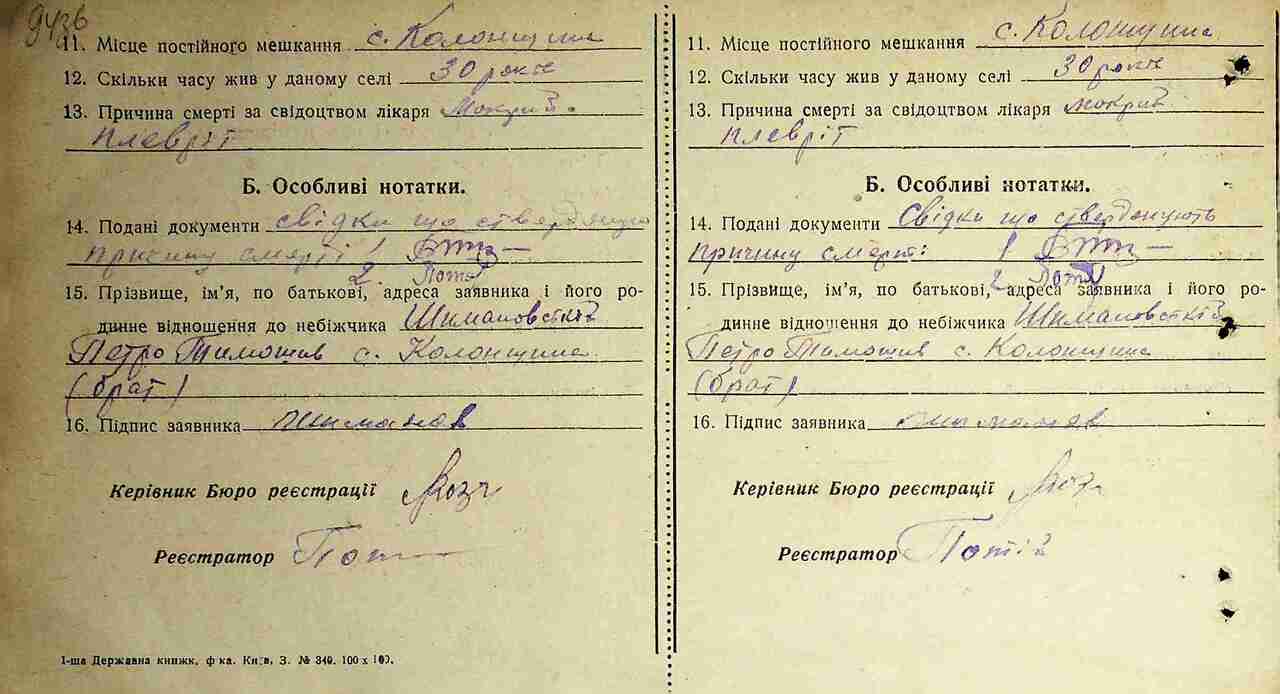 9436
11. Місце постійного мешкання с. Колонщина
12. Скільки часу жив у даному селі 30 років
13. Причина смерті за свідоцтвом лікаря мокрий
плевріт
Б. Особливі нотатки.
14. Подані документи свідки що стверджують
причину смерті 1
2
15. Прізвище, ім’я, по батькові, адреса заявника і його ро-
динне відношення до небіжчика Шимановський
Петро Тимошів с. Колонщина
(брат)
16. Підпис заявника Шиманов
Керівник Бюро реєстрації
Реєстратор
1-ша Державна книжк. ф-ка. Київ, З. № 340. 100 x 100.
11. Місце постійного мешкання с. Колонщина
12. Скільки часу жив у даному селі 30 років
13. Причина смерті за свідоцтвом лікаря мокрий
плевріт
Б. Особливі нотатки.
14. Подані документи Свідки що стверджують
причину смерті: 1
2
15. Прізвище, ім’я, по батькові, адреса заявника і його ро-
динне відношення до небіжчика Шимановський
Петро Тимошів с. Колонщина
(брат)
16. Підпис заявника Шиманов
Керівник Бюро реєстрації
Реєстратор